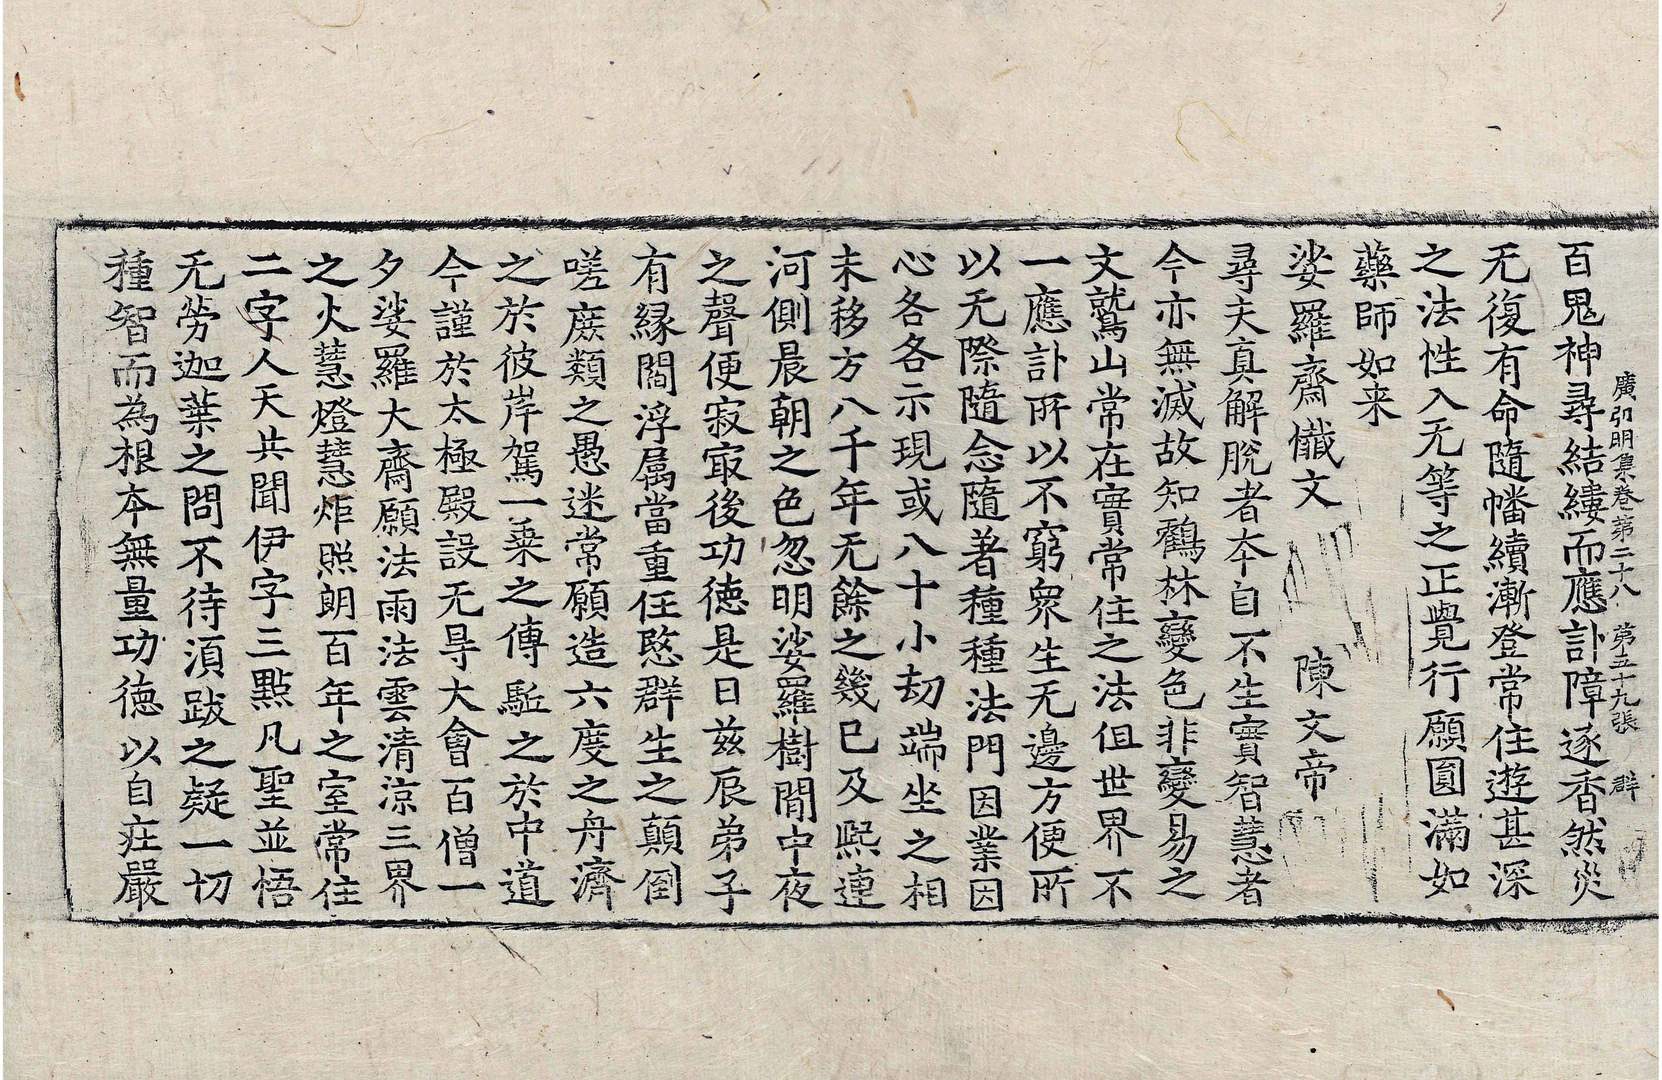 廣弘明集卷第二十八 第五十九張 群
百鬼神尋結縷而應訃障逐香然災
无復有命隨幡續漸登常住遊甚深
之法性入无等之正覺行願圓滿如
藥師如来
娑羅齋懺文 陳文帝
尋夫真解脫者本自不生實智慧者
今亦無滅故知鶴林變色非變易之
文鷲山常在實常住之法但世界不
一應訃所以不窮衆生无邊方便所
以无際隨念隨著種種法門因業因
心各各示現或八十小劫端坐之相
未移方八千年无餘之幾已及熙連
河側晨朝之色忽明娑羅樹間中夜
之聲便寂㝡後功德是日兹辰弟子
有緣閻浮属當重任愍群生之顛倒
嗟庶類之愚迷常願造六度之舟濟
之於彼岸駕一乗之傳駈之於中道
今謹於太極殿設无㝵大會百僧一
夕娑羅大齋願法雨法雲清涼三界
之火慧燈慧炬照朗百年之室常住
二字人天共聞伊字三點凡聖並悟
无勞迦葉之問不待須跋之疑一切
種智而為根本無量功德以自庄嚴